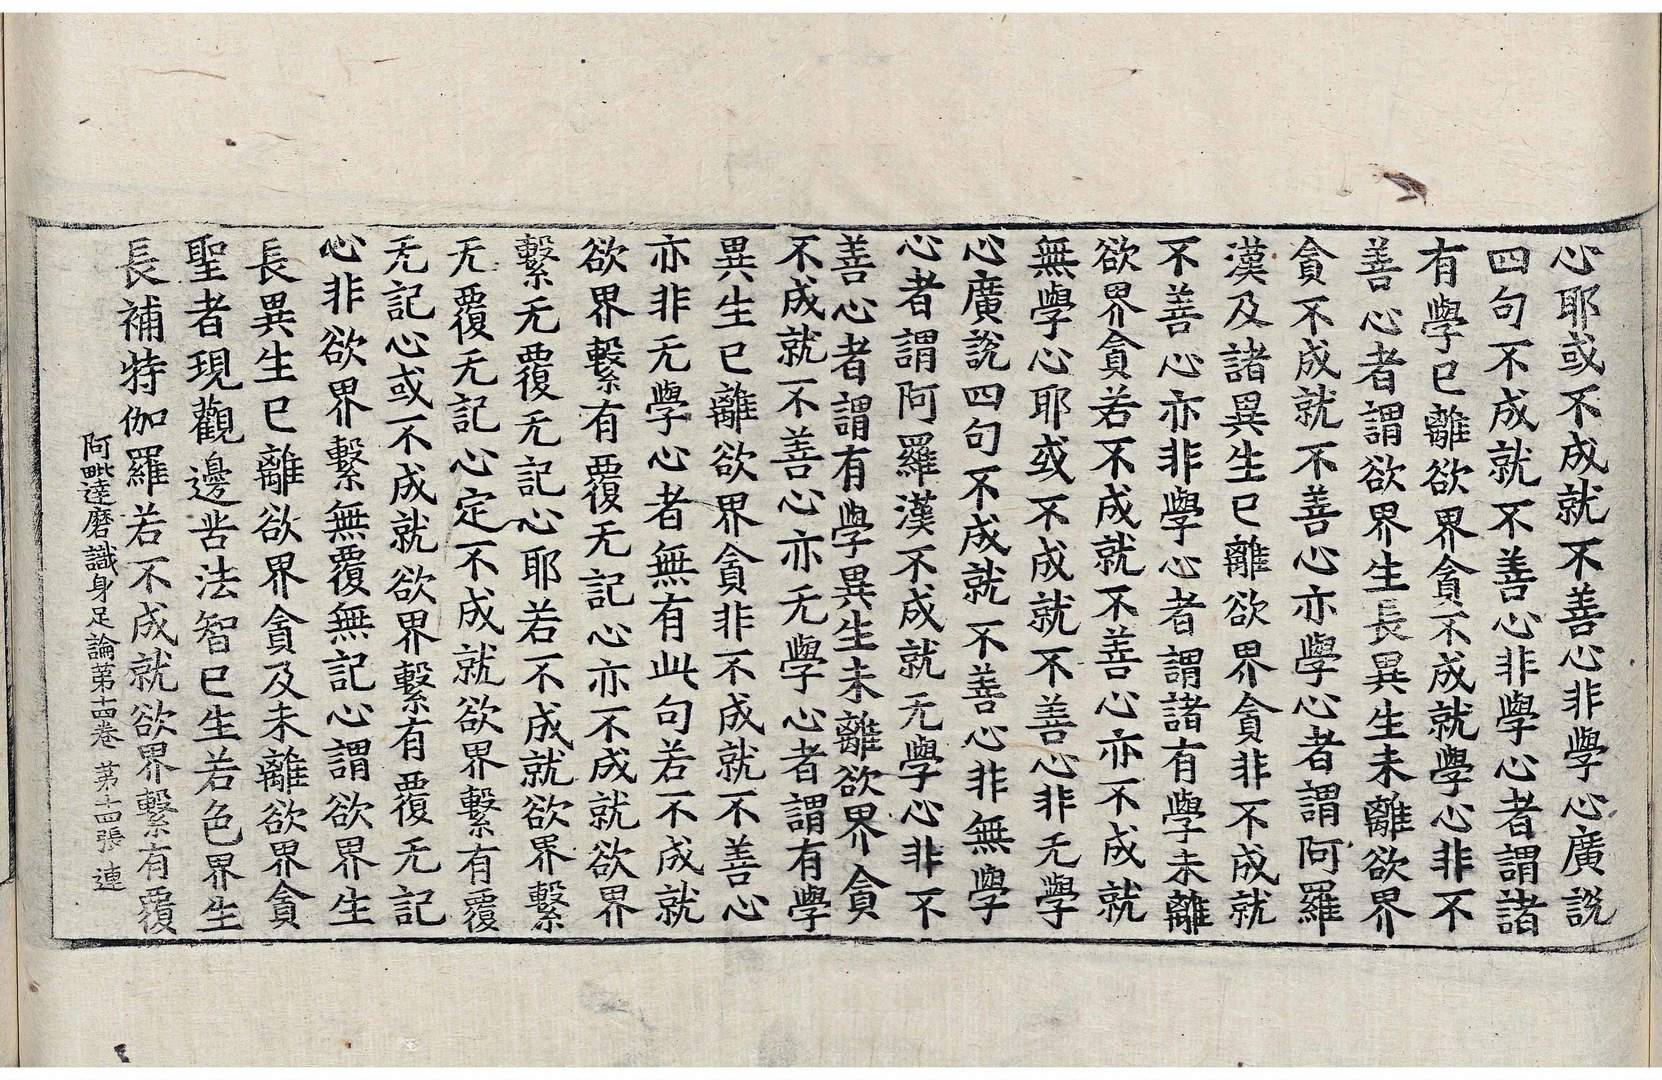 心耶或不成就不善心非學心廣說
四句不成就不善心非學心者謂諸
有學已離欲界貪不成就學心非不
善心者謂欲界生長異生未離欲界
貪不成就不善心亦學心者謂阿羅
漢及諸異生已離欲界貪非不成就
不善心亦非學心者謂諸有學未離
欲界貪若不成就不善心亦不成就
無學心耶或不成就不善心非无學
心廣說四句不成就不善心非無學
心者謂阿羅漢不成就无學心非不
善心者謂有學異生未離欲界貪
不成就不善心亦无學心者謂有學
異生已離欲界貪非不成就不善心
亦非无學心者無有此句若不成就
欲界繫有覆无記心亦不成就欲界
繫无覆无記心耶若不成就欲界繫
无覆无記心定不成就欲界繫有覆
无記心或不成就欲界繫有覆无記
心非欲界繫無覆無記心謂欲界生
長異生已離欲界貪及未離欲界貪
聖者現觀邊苦法智已生若色界生
長補特伽羅若不成就欲界繫有覆
阿毗達磨識身足論第十四卷 第十四張 連